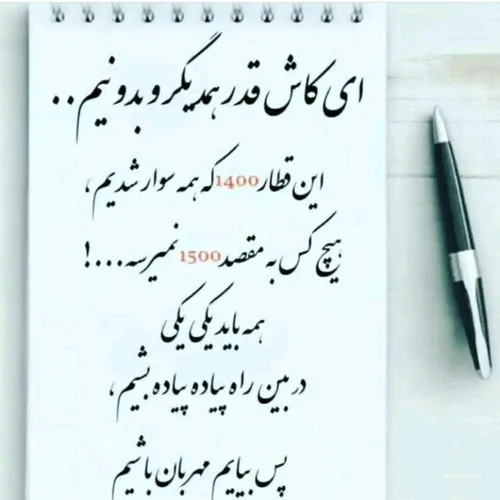 ای کاش قدر همدیگرو بدونیم..
این قطار 1400 که همه سوار شدیم،
هیچ کس به مقصد 1500 نمیرسه...!
همه باید یکی یکی
در بین راه پیاده پیاده بشیم،
پس بیایم مهربان باشیم